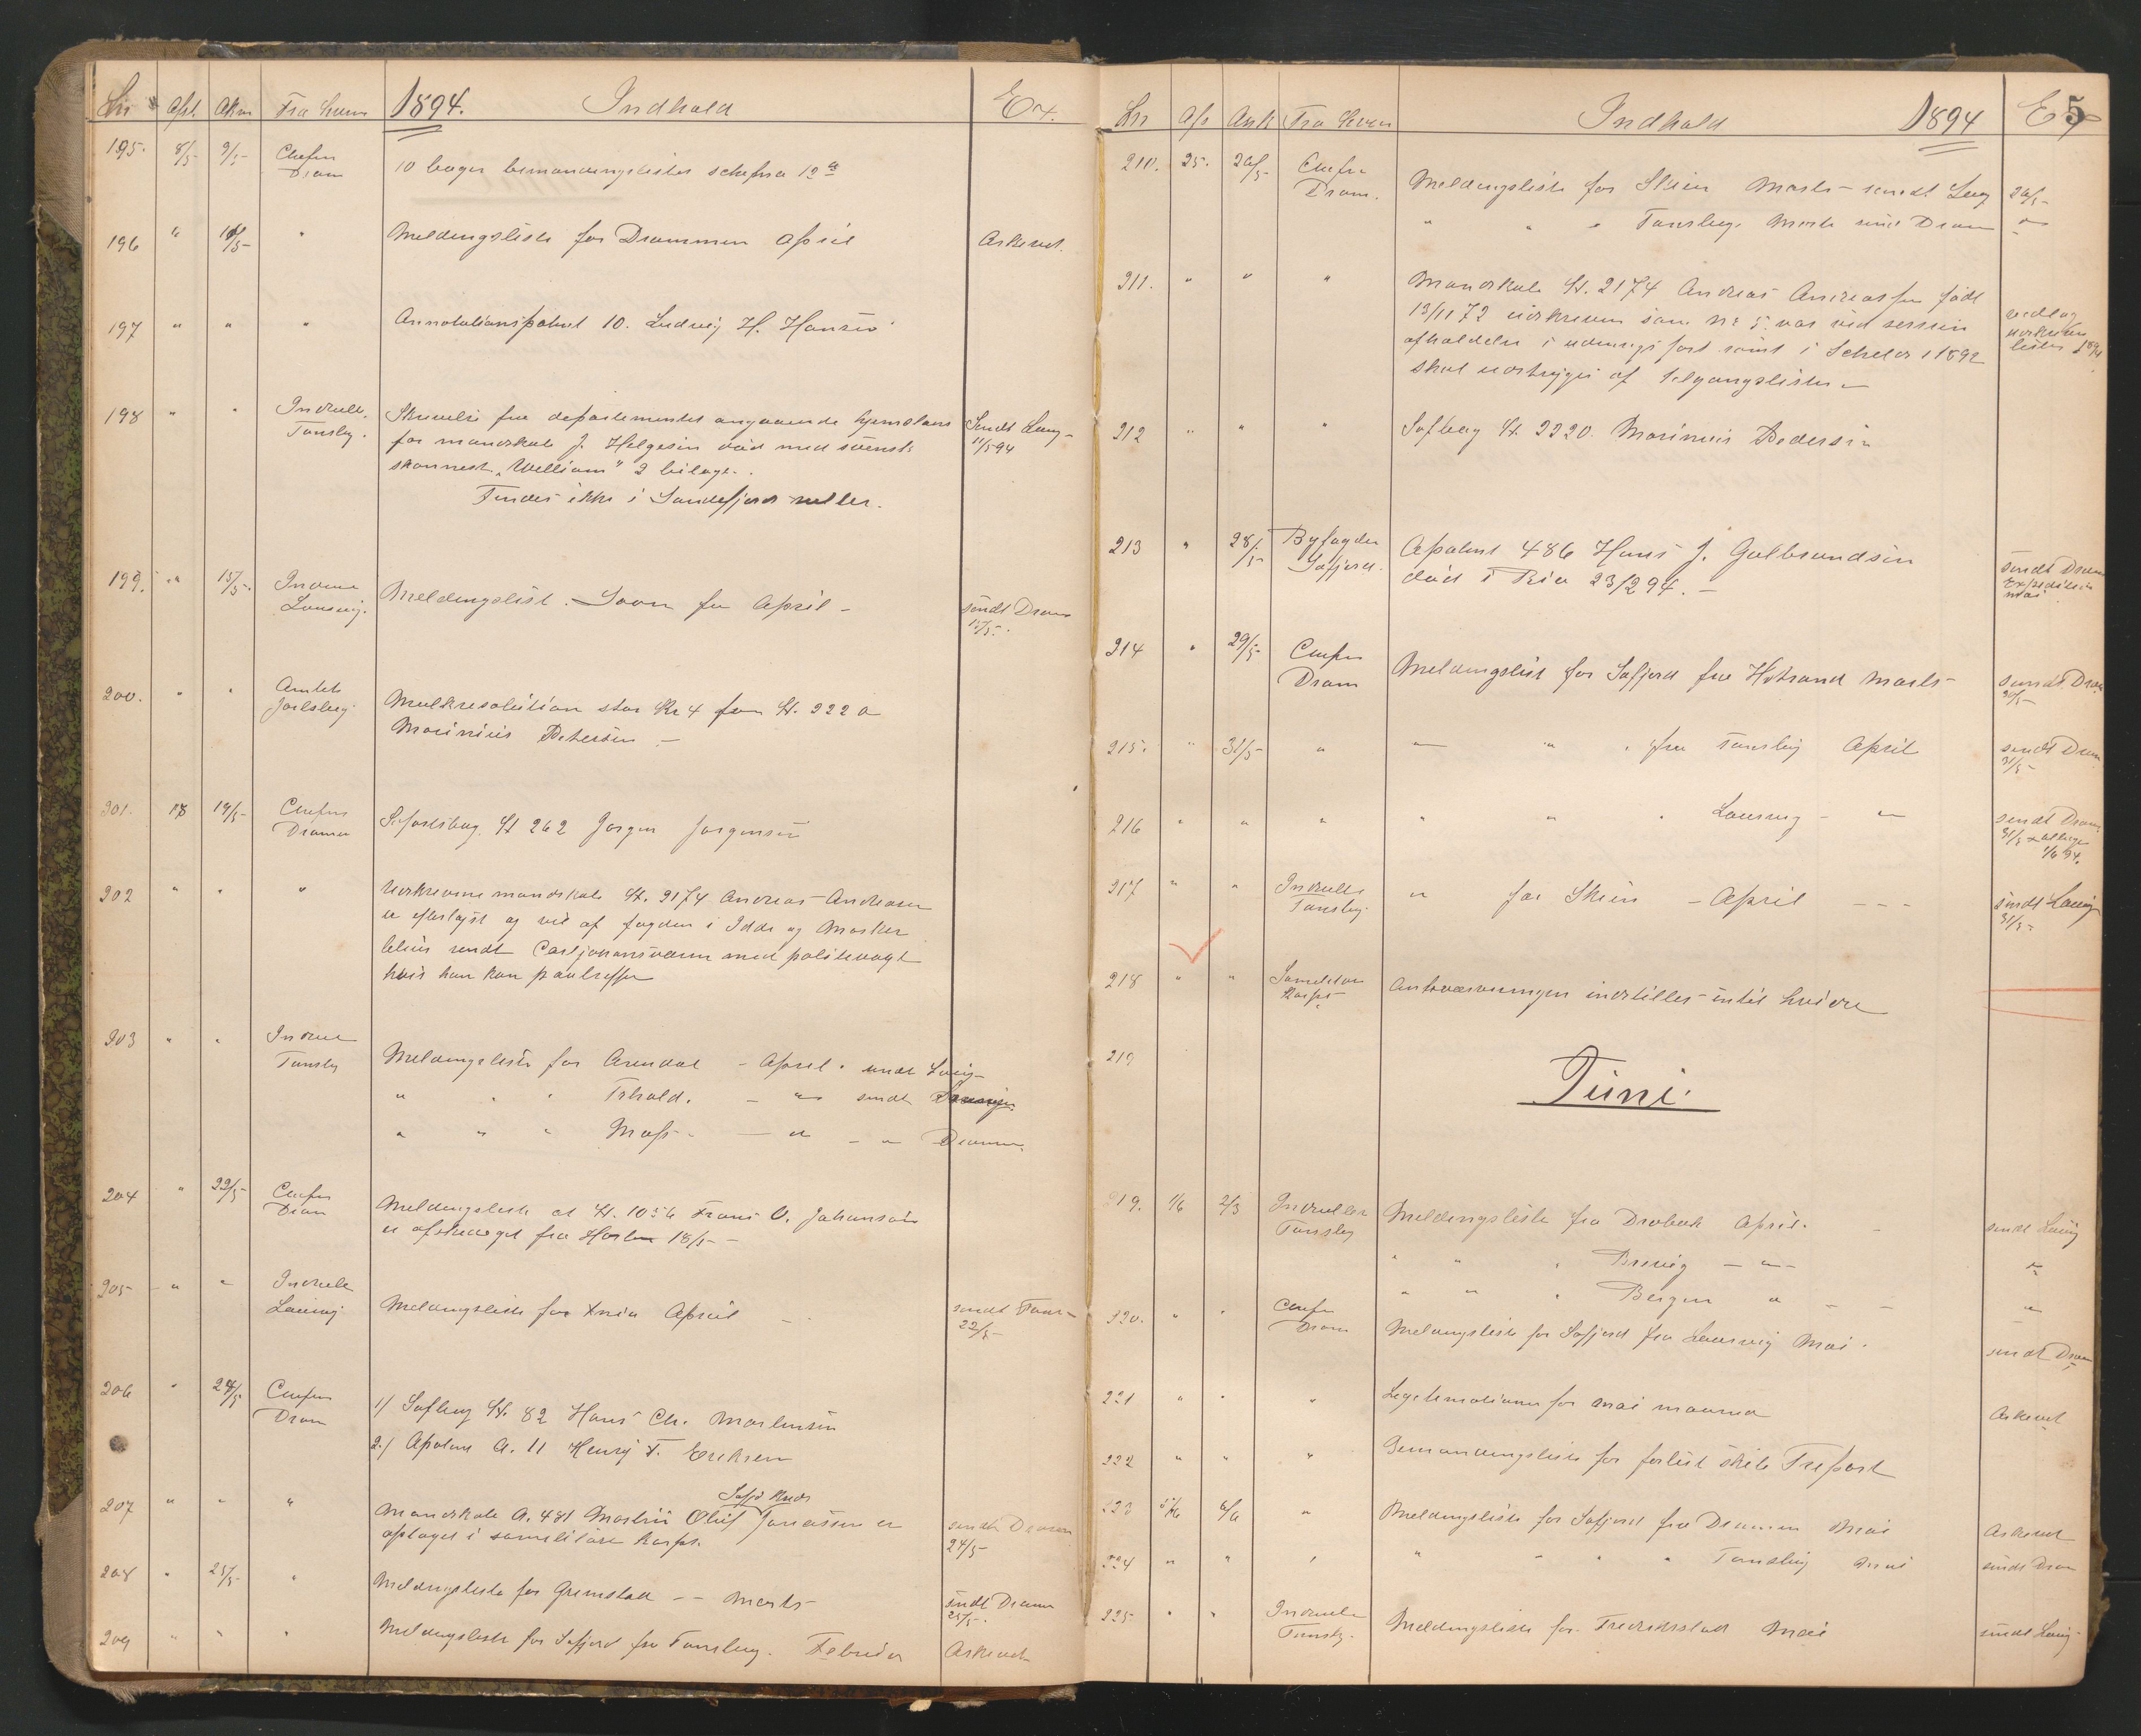 Lnr Afs. Ankn Fra hvem 1894. Indhold Ex.
195. 8/5- 9/5- Chefen Dram 10 bøger bemandingslister schema 12
196 " 10/5- " Meldingsliste for Drammen April Arkivet.
197 " " " Annotationspatent 10. Ludvig H. Hansen
198 " " Indrull. Tønsbg. Skrivelse fra departementet angaaende hjemstavn Sendt Laurv-
for mandskab J. Helgesen død med svensk 11/5 94
skonnert "William" 2 bilage.
Findes ikke i Sandefjords ruller.
199. " 15/5- Indrul Laurvig. Meldingslist. Svon fra April - sendt Dram
15/5-.
200. " " Amtet Jarlsberg Mulktresolution stor Kr 4 for H. 2220
Marinius Pedersen -
201. 18 19/5- Chefen Drammen Søfartsbog. H 262 Jørgen Jørgensen
202 " " " Udskrevne mandskab H. 2174 Andreas Andreasen
er efterlyst og vil af fogden i Idde og Marker
blive sendt Carljohansværn med politivagt
hvis han kan paatreffes
203 " " Indrul Tønsbg Meldingsliste for Arendal - April. sendt Laurvig-
" " " Frhald. - " sendt
" " " Moss. - " - " Drammen.
204 " 22/5- Chefen Dram Meldingsliste at H. 1056 Frans O. Johansen
er afskediget fra Horten 18/5-
205- " " Indrulle Laurvig. Meldingsliste for Xnia April - sendt Tøns-
22/5-
206 " 24/5 Chefen Dram 1/ Søfbog H. 82 Hans Chr. Martinsen
2./ Apatent A. 11 Henry F. Eriksen
207 " " " Mandskab A. 481 Martin Oluf Jonassen er sendt Dramm
optaget i sanitetære korps. 24/5-
208 " 25/5- " Meldingsliste for Grimstad -- Marts- sendt Dramm
25/5-.
209 " " " Meldingsliste for Søfjord fra Tønsberg. Februar Arkivet
Lnr Afs Ank Fra hvem Indhold 1894 Ex 5
210. 25. 26/5- Chefen Dram. Meldingsliste for Skien Marts - sendt Laurv 26/5-
" " " Tønsberg Marts send Dram "
211. " " " Mandskab H. 2174 Andreas Andreassen født
13/11 72 udskreven som nr 5. var ved session vedlag
afholdelse i udenrigs fart samt i
skal udstryges af Afgangslisten -
212 " " " Søfbog H. 2220. Marinius Pedersen
213 " 28/5- Byfogden Søfjord. Apatent 486 Hans J. Gulbrandsen sendt Dram
død i Rio 23/2 94. - Expedition
mai
214 " 29/5- Chefen Dram Meldingslist for Søfjord fra Hstrand Marts- sendt Dram
30/5-
215. " 31/5- " - " " fra Tønsberg April sendt Dram
31/5-
216 " " " " " " Laurvig - " sendt Dram
31/5
1/6 94.
217 " " Indrulle Tønsbg. " for Skien - April --- sendt Laurvig
31/5-
218 " " Sanitetære Korps Anhværvningen indstilles indtil hvidre
219
Juni.
219. 1/6 2/3 Indrullen Tønsbg Meldingsliste fra Drøbak April. - sendt Laurvig
" " " Brevig - " - "
" " " Bergen " - - "
220. " " Chefen Dram Meldingsliste for Søfjord fra Laurvig Mai. sendt Dram
221 " " " Legitimationer for mai maaned Arkivet
222 " " " Bemandingsliste for forlist skib Freport
223 5/6 6/6 " Meldingsliste for Søfjord fra Drammen Mai Arkivet
224 " " " " " " " Tønsberg Mai sendt Dram
225 " " Indrulle Tønsbg. Meldingsliste for Fredrikstad Mai sendt Laurvig